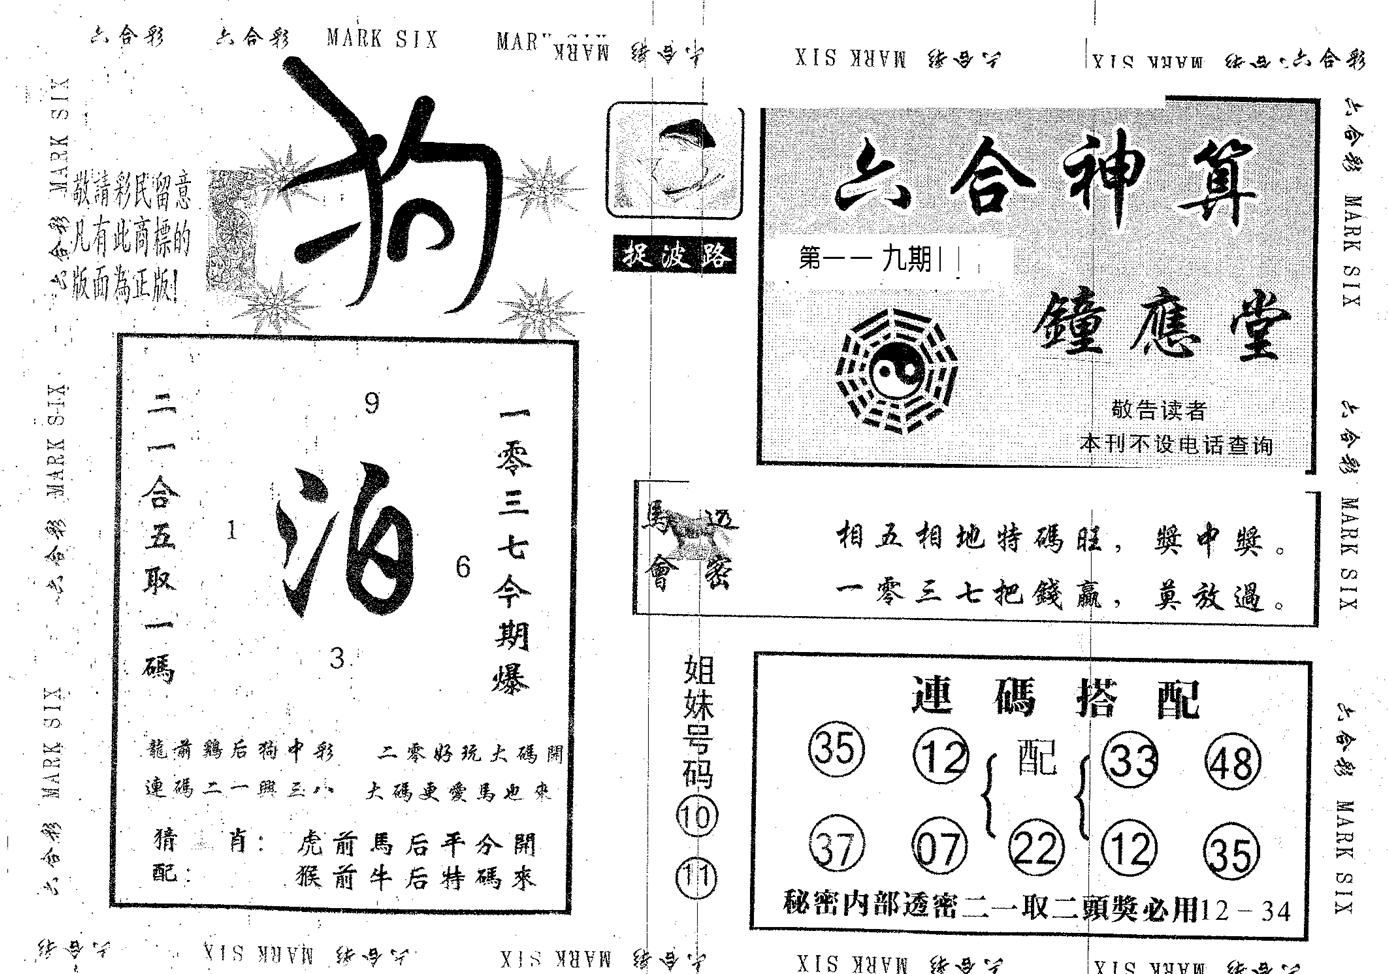 六合彩 六合彩 MARK SIX MARK
六合彩 MARK SIX
六合彩 MARK SIX
六合彩 MARK SIX
六合彩
六合彩 MARK SIX
六合彩 MARK SIX
六合彩 MARK SIX
六合彩
狗
敬請彩民留意
凡有此商標的
版面為正版!
捉波路
六合神算
第一一九期
鐘應堂
敬告读者
本刊不设电话查询
二一合五取一碼
9
1
泊
6
3
一零三七今期爆
龍前鷄后狗中彩 二零好玩大碼開
連碼二一興三八 大碼更愛馬也來
猜肖: 虎前馬后平分開
配: 猴前牛后特碼來
馬會透密
相五相地特碼旺,獎中獎。
一零三七把錢贏,莫放過。
姐妹号码
10
11
連碼搭配
35 12 配 33 48
37 07 22 12 35
秘密内部透密二一取二頭獎必用12-34
六合彩 MARK SIX
六合彩 MARK SIX
六合彩 MARK SIX
六合彩
六合彩 MARK SIX
六合彩 MARK SIX
六合彩 MARK SIX
六合彩 MARK SIX